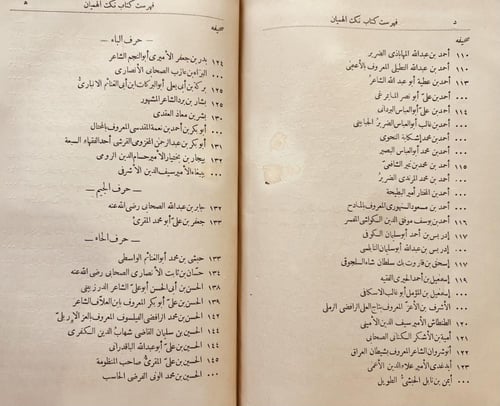 د فهرست كتاب نكت الهميان
صحيفه
١١٠ أحمد بن عبدالله المهاباذى الضرير
٠٠٠ أحمد بن عبدالله التطيلى المعروف بالأعمى
١١٣ أحمد بن عطية أبو عبد الله الشاعر
٠٠٠ أحمد بن علىّ أبو نصر المايمرغى
١١٤ أحمد بن علىّ أبوالعباس البردانى
٠٠٠ أحمد بن غالب أبوالعباس الضرير الجبابينى
٠٠٠ أحمد بن محمد إشكابة النحوى
٠٠٠ أحمد بن محمد أبوالعباس البصير
١١٥ أحمد بن محمد بن نمير الشافعىّ
٠٠٠ أحمد بن محمد المرندى الضرير
٠٠٠ أحمد بن المختار أمير البطيحة
٠٠٠ أحمد بن مسعود السنهورى المعروف بالمادح
١١٦ أحمد بن يوسف موفق الدين الكواشى المفسر
١١٧ إدريس بن أحمد أبو سليمان الكوفى
٠٠٠ إدريس بن عبدالله أبوسليمان النابلسى
٠٠٠ إسحق بن قاروت بك سلطان شاه السلجوقى
٠٠٠ إسمعيل بن أحمد الحيرى الفقيه
١١٩ إسمعيل بن المؤمل أبوغالب الاسكافى
٠٠٠ الأشرف بن الأعز المعروف بتاج العلى الرافضى الرملى
١٢٠ الطنطاش الأمير سيف الدين الأمينى
٠٠٠ أمية بن الأشكر الكنانى الصحابى
١٢٢ أنوشروان الشاعر المعروف بشيطان العراق
١٢٣ أيدغدى الأمير علاء الدين الأعمى
٠٠٠ أيمن بن نابل الحبشىّ الطويل
فهرست كتاب نكت الهميان ه
صحيفه
— حرف الباء —
١٢٤ بدر بن جعفر الأميرى أبوالنجم الشاعر
٠٠٠ البراء بن عازب الصحابى الأنصارى
٠٠٠ بركة بن أبى يعلى أبوالبركات ابن أبى الغنائم الانبارىّ
١٢٥ بشار بن برد الشاعر المشهور
١٣٠ بشر بن معاذ العقدى
٠٠٠ أبو بكر بن أحمد نعمة المقدسى المعروف بالمحتال
١٣١ أبو بكر بن عبدالرحمن المخزومى القرشى أحد الفقهاء السبعة
١٣٢ بيجار بن بختيار الأمير حسام الدين الرومى
٠٠٠ ببغاء الأمير سيف الدين الأشرفى
— حرف الجيم —
١٣٢ جابر بن عبدالله الصحابى رضى الله عنه
١٣٣ جعفر بن علىّ أبو محمد المقرئ
— حرف الحاء —
١٣٣ حبشى بن محمد أبوالغنائم الواسطى
١٣٤ حسّان بن ثابت الأنصارى الصحابى رضى الله عنه
١٣٨ الحسين بن أبى الحسن أبو علىّ الشاعر الدرزبينى
١٣٩ الحسن بن علىّ أبو بكر المعروف بابن العلّاف الشاعر
١٤٢ الحسن بن محمد الرافضى الفيلسوف المعروف بالعز الإربلىّ
١٤٤ الحسين بن سليمان القاضى شهاب الدين الكفرى
١٤٤ الحسين بن علىّ أبو عبدالله الباقدرائى
١٤٥ الحسين بن علىّ المقرئ صاحب المنظومة
٠٠٠ الحسين بن محمد الونى الفرضى الحاسب